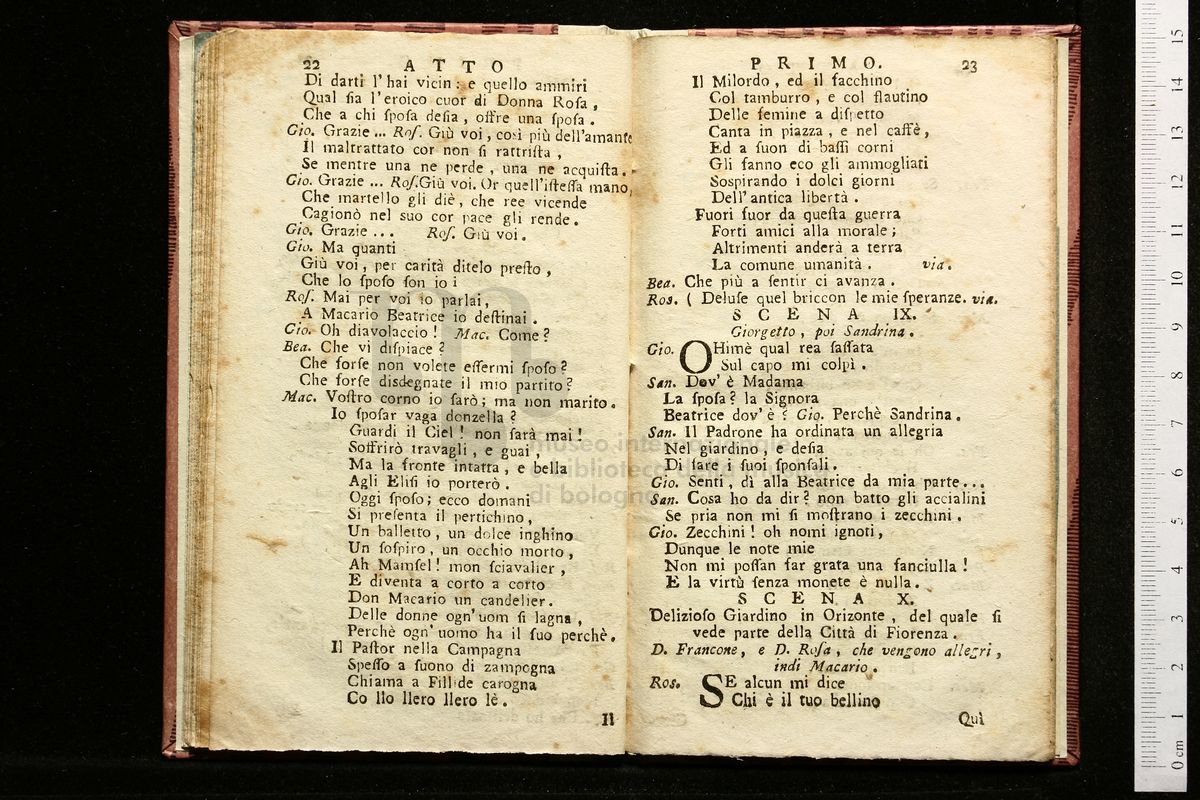 22 ATTO
Di darti l'hai vicin: e quello ammiri
Qual ſia l'eroico cuor di Donna Roſa,
Che a chi ſpoſa deſia, offre una ſpoſa.
Gio. Grazie ... Roſ. Giù voi, così più dell'amante
Il maltrattato cor non ſi rattriſta,
Se mentre una ne perde, una ne acquiſta.
Gio. Grazie ... Roſ. Giù voi. Or quell'iſteſſa mano,
Che martello gli diè, che ree vicende
Cagionò nel suo cor pace gli rende.
Gio. Grazie ... Roſ. Giù voi.
Gio. Ma quanti
Giù voi, per carità ditelo preſto,
Che lo ſpoſo ſon io i
Roſ. Mai per voi io parlai,
A Macario Beatrice io deſtinai.
Gio. Oh diavolaccio! Mac. Come?
Bea. Che vi diſpiace?
Che forſe non volete eſſermi ſpoſo?
Che forſe disdegnate il mio partito?
Mac. Voſtro corno io ſarò; ma non marito.
Io ſpoſar vaga donzella?
Guardi il Ciel! non ſarà mai!
Soffrirò travagli, e guai,
Ma la fronte intatta, e bella
Agli Eliſi io porterò.
Oggi ſpoſo; ecco domani
Si preſenta il pertichino,
Un balletto, un dolce inghino
Un ſoſpiro, un occhio morto,
Ah Mamſel! mon ſciavalier,
E diventa a corto a corto
Don Macario un candelier.
Delle donne ogn'uom ſi lagna,
Perchè ogn'uomo ha il ſuo perchè.
Il Paſtor nella Campagna
Speſſo a ſuono di zampogna
Chiama a Fillide carogna
Co llo llero llero lè.
Il
PRIMO. 23
Il Milordo, ed il facchino
Col tamburro, e col flautino
Delle femine a diſpetto
Canta in piazza, e nel caffè,
Ed a ſuon di baſſi corni
Gli fanno eco gli ammogliati
Sospirando i dolci giorni
Dell'antica libertà.
Fuori fuor da queſta guerra
Forti amici alla morale;
Altrimenti anderà a terra
La comune umanità. via.
Bea. Che più a ſentir ci avanza.
Ros. ( Deluſe quel briccon le mie ſperanze. via.
SCENA IX.
Giorgetto, poi Sandrina.
Gio. OHimè qual rea ſaſſata
Sul capo mi colpì.
San. Dov'è Madama
La ſpoſa? la Signora
Beatrice dov'è? Gio. Perchè Sandrina.
San. Il Padrone ha ordinata un allegria
Nel giardino, e deſia
Di fare i ſuoi ſponſali.
Gio. Senti, dì alla Beatrice da mia parte...
San. Cosa ho da dir? non batto gli accialini
Se pria non mi ſi moſtrano i zecchini.
Gio. Zecchini! oh nomi ignoti,
Dunque le note mie
Non mi poſſan far grata una fanciulla!
E la virtù ſenza monete è nulla.
SCENA X.
Delizioſo Giardino in Orizonte, del quale ſi
vede parte della Città di Fiorenza.
D. Francone, e D. Roſa, che vengono allegri,
indi Macario.
Ros. SE alcun mi dice
Chi è il tuo bellino
Quì